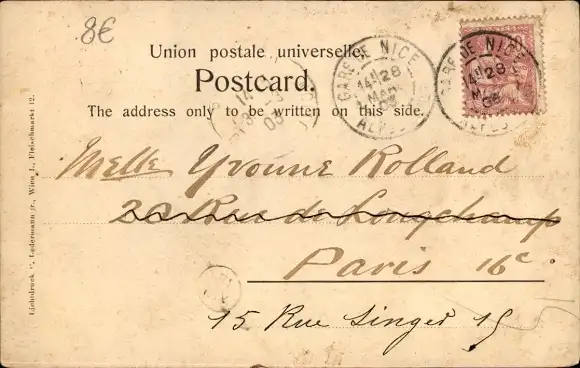 8€
Union postale universelle.
Postcard.
The address only to be written on this side.
GARE DE NICE
14 28
MAR
GARE DE NICE
14 28
Melle Yvonne Rolland
Rue de Longchamp
Paris 16e
15 Rue Singer
Lichtdruck C. Ledermann jr., Wien I., Fleischmarkt 12.